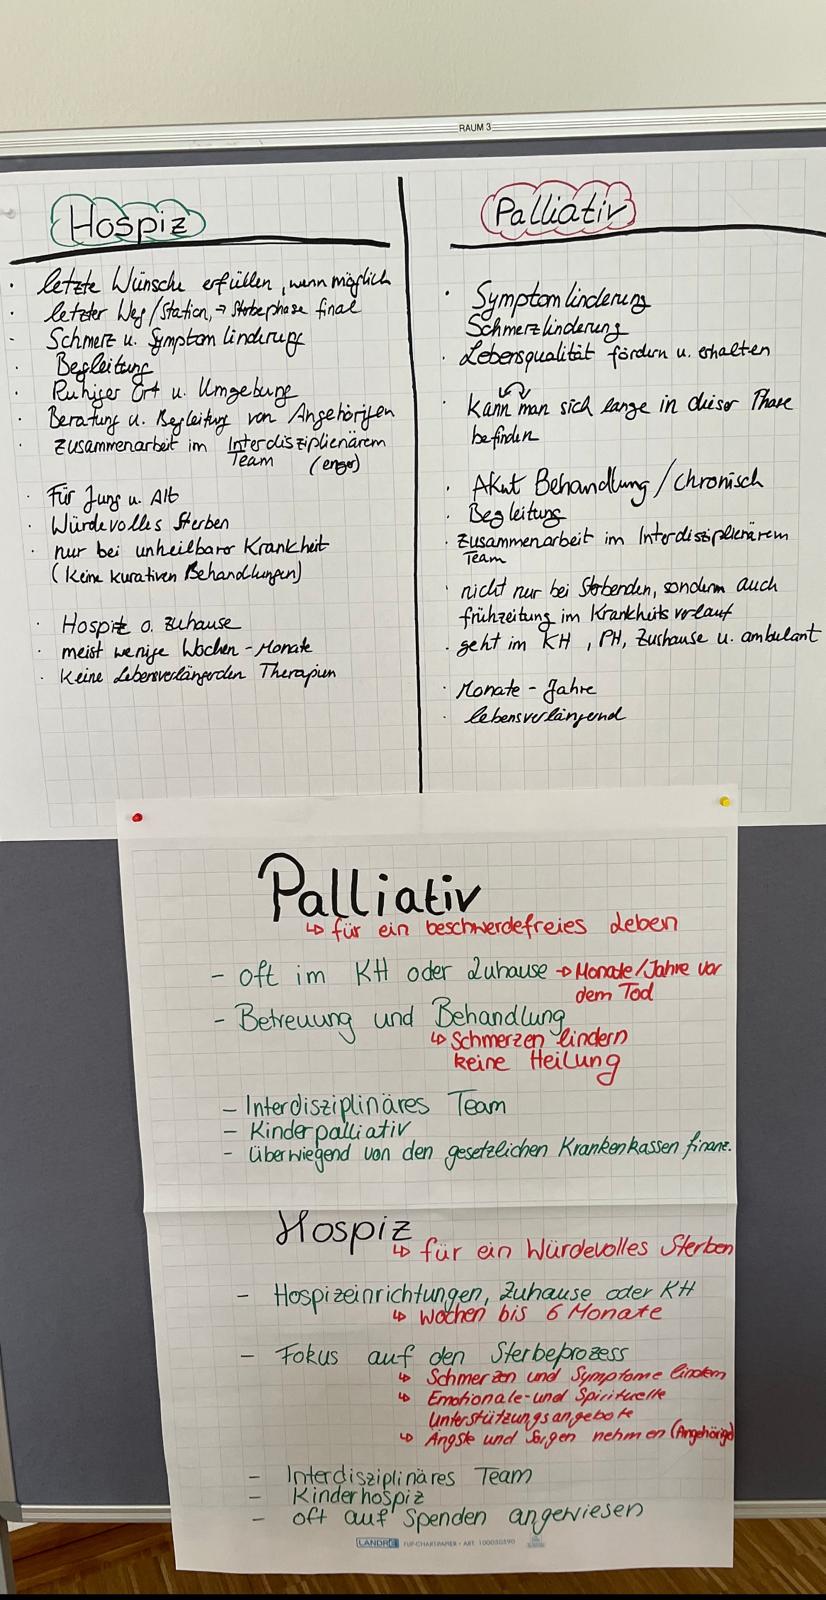 RAUM 3
Hospiz
letzte Wünsche erfüllen, wenn möglich
letzter Weg/Station, → Sterbephase final
Schmerz u. Symptom linderung
Begleitung
Ruhiger Ort u. Umgebung
Beratung u. Begleitung von Angehörigen
Zusammenarbeit im Interdisziplienärem
Team (enger)
Für Jung u. Alt
Würdevolles Sterben
nur bei unheilbarer Krankheit
(Keine kurativen Behandlungen)
Hospiz o. Zuhause
meist wenige Wochen - Monate
Keine Lebensverlängerden Therapien
Palliativ
Symptomlinderung
Schmerzlinderung
Lebensqualität fördern u. erhalten
Kann man sich lange in dieser Phase
befinden
Akut Behandlung / chronisch
Begleitung
Zusammenarbeit im Interdisziplienärem
Team
nicht nur bei Sterbenden, sondern auch
frühzeitung im Krankheits verlauf
geht im KH, PH, Zuhause u. ambulant
Monate - Jahre
lebensverlängend
Palliativ
↳ für ein beschwerdefreies Leben
- oft im KH oder Zuhause → Monate/Jahre vor
dem Tod
- Betreuung und Behandlung
↳ Schmerzen lindern
keine Heilung
- Interdisziplinäres Team
- Kinderpalliativ
- überwiegend von den gesetzlichen Krankenkassen finanz.
Hospiz
↳ für ein Würdevolles Sterben
- Hospizeinrichtungen, Zuhause oder KH
↳ Wochen bis 6 Monate
- Fokus auf den Sterbeprozess
↳ Schmerzen und Symptome lindern
↳ Emotionale- und Spirituelle
Unterstützungsangebote
↳ Ängste und Sorgen nehmen (Angehörige)
- Interdisziplinäres Team
- Kinderhospiz
- oft auf Spenden angewiesen
LANDRÉ FLIP-CHARTPAPIER • ART. 100050590